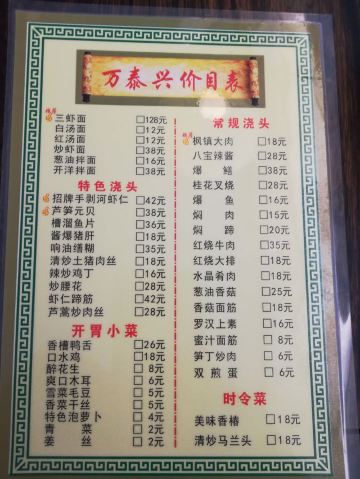 万泰兴价目表
推荐
三虾面 □128元
白汤面 □12元
红汤面 □12元
炒虾面 □38元
葱油拌面 □16元
开洋拌面 □38元
特色浇头
招牌手剥河虾仁 □42元
芦笋元贝 □38元
槽溜鱼片 □36元
酱爆猪肝 □18元
响油缮糊 □35元
清炒土猪肉丝 □18元
辣炒鸡丁 □16元
炒腰花 □28元
虾仁蹄筋 □42元
芦蒿炒肉丝 □28元
开胃小菜
香槽鸭舌 □26元
口水鸡 □18元
醉花生 □8元
爽口木耳 □6元
雪菜毛豆 □5元
香菜干丝 □4元
特色泡萝卜 □4元
青菜 □2元
姜丝 □2元
常规浇头
枫镇大肉 □18元
八宝辣酱 □28元
爆鳝 □38元
桂花叉烧 □28元
爆鱼 □16元
焖肉 □15元
焖蹄 □20元
红烧牛肉 □35元
红烧大排 □18元
水晶肴肉 □18元
葱油香菇 □25元
香菇面筋 □18元
罗汉上素 □16元
蜜汁面筋 □8元
笋丁炒肉 □6元
双煎蛋 □6元
时令菜
美味香椿 □18元
清炒马兰头 □18元